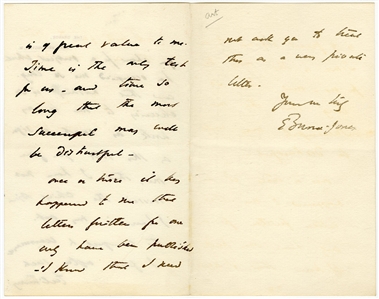 is of great value to me.
Time is the only test
for us - and time so
long that the most
successful may well
be distrustful -
once or twice it has
happened to me that
letters written for one
only have been published
- I know that I need
not ask you to treat
this as a very private
letter.
E Burne-Jones